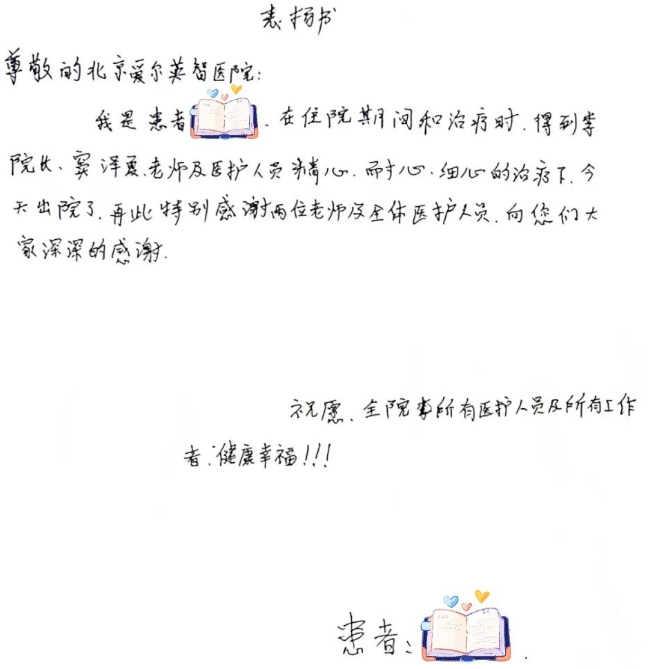 表扬书
尊敬的北京爱尔英智医院:
我是患者 . 在住院期间和治疗时. 得到李
院长、窦泽夏.老师及医护人员精心.耐心.细心的治疗下.今
天出院了.再此特别感谢两位老师及全体医护人员.向您们大
家深深的感谢.
祝愿.全院所有医护人员及所有工作
者:健康幸福!!!
患者: .